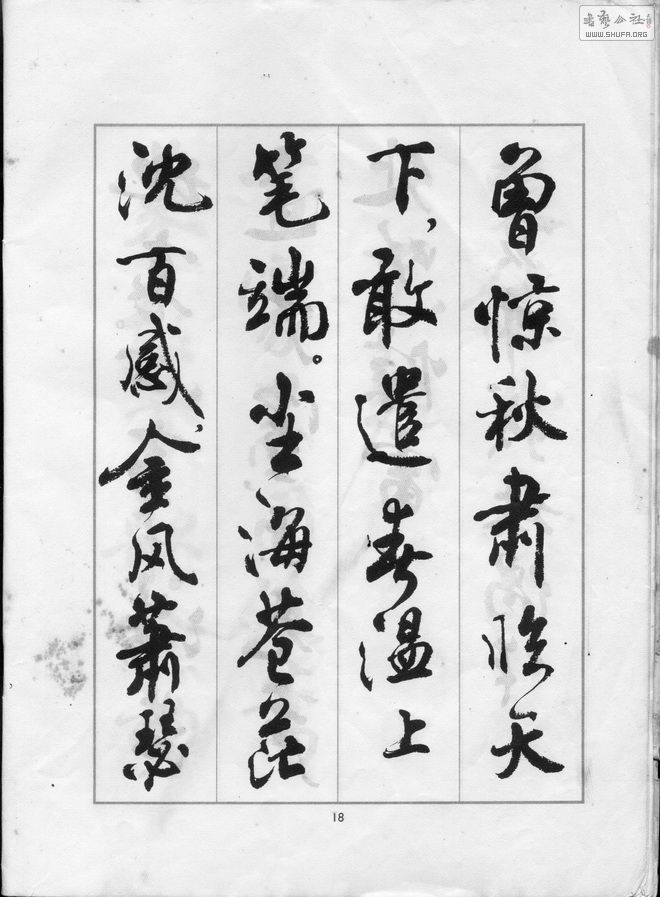 曾惊秋肃临天
下，敢遣春温上
笔端。尘海苍茫
沈百感，金风萧瑟
18
书艺公社
WWW.SHUFA.ORG